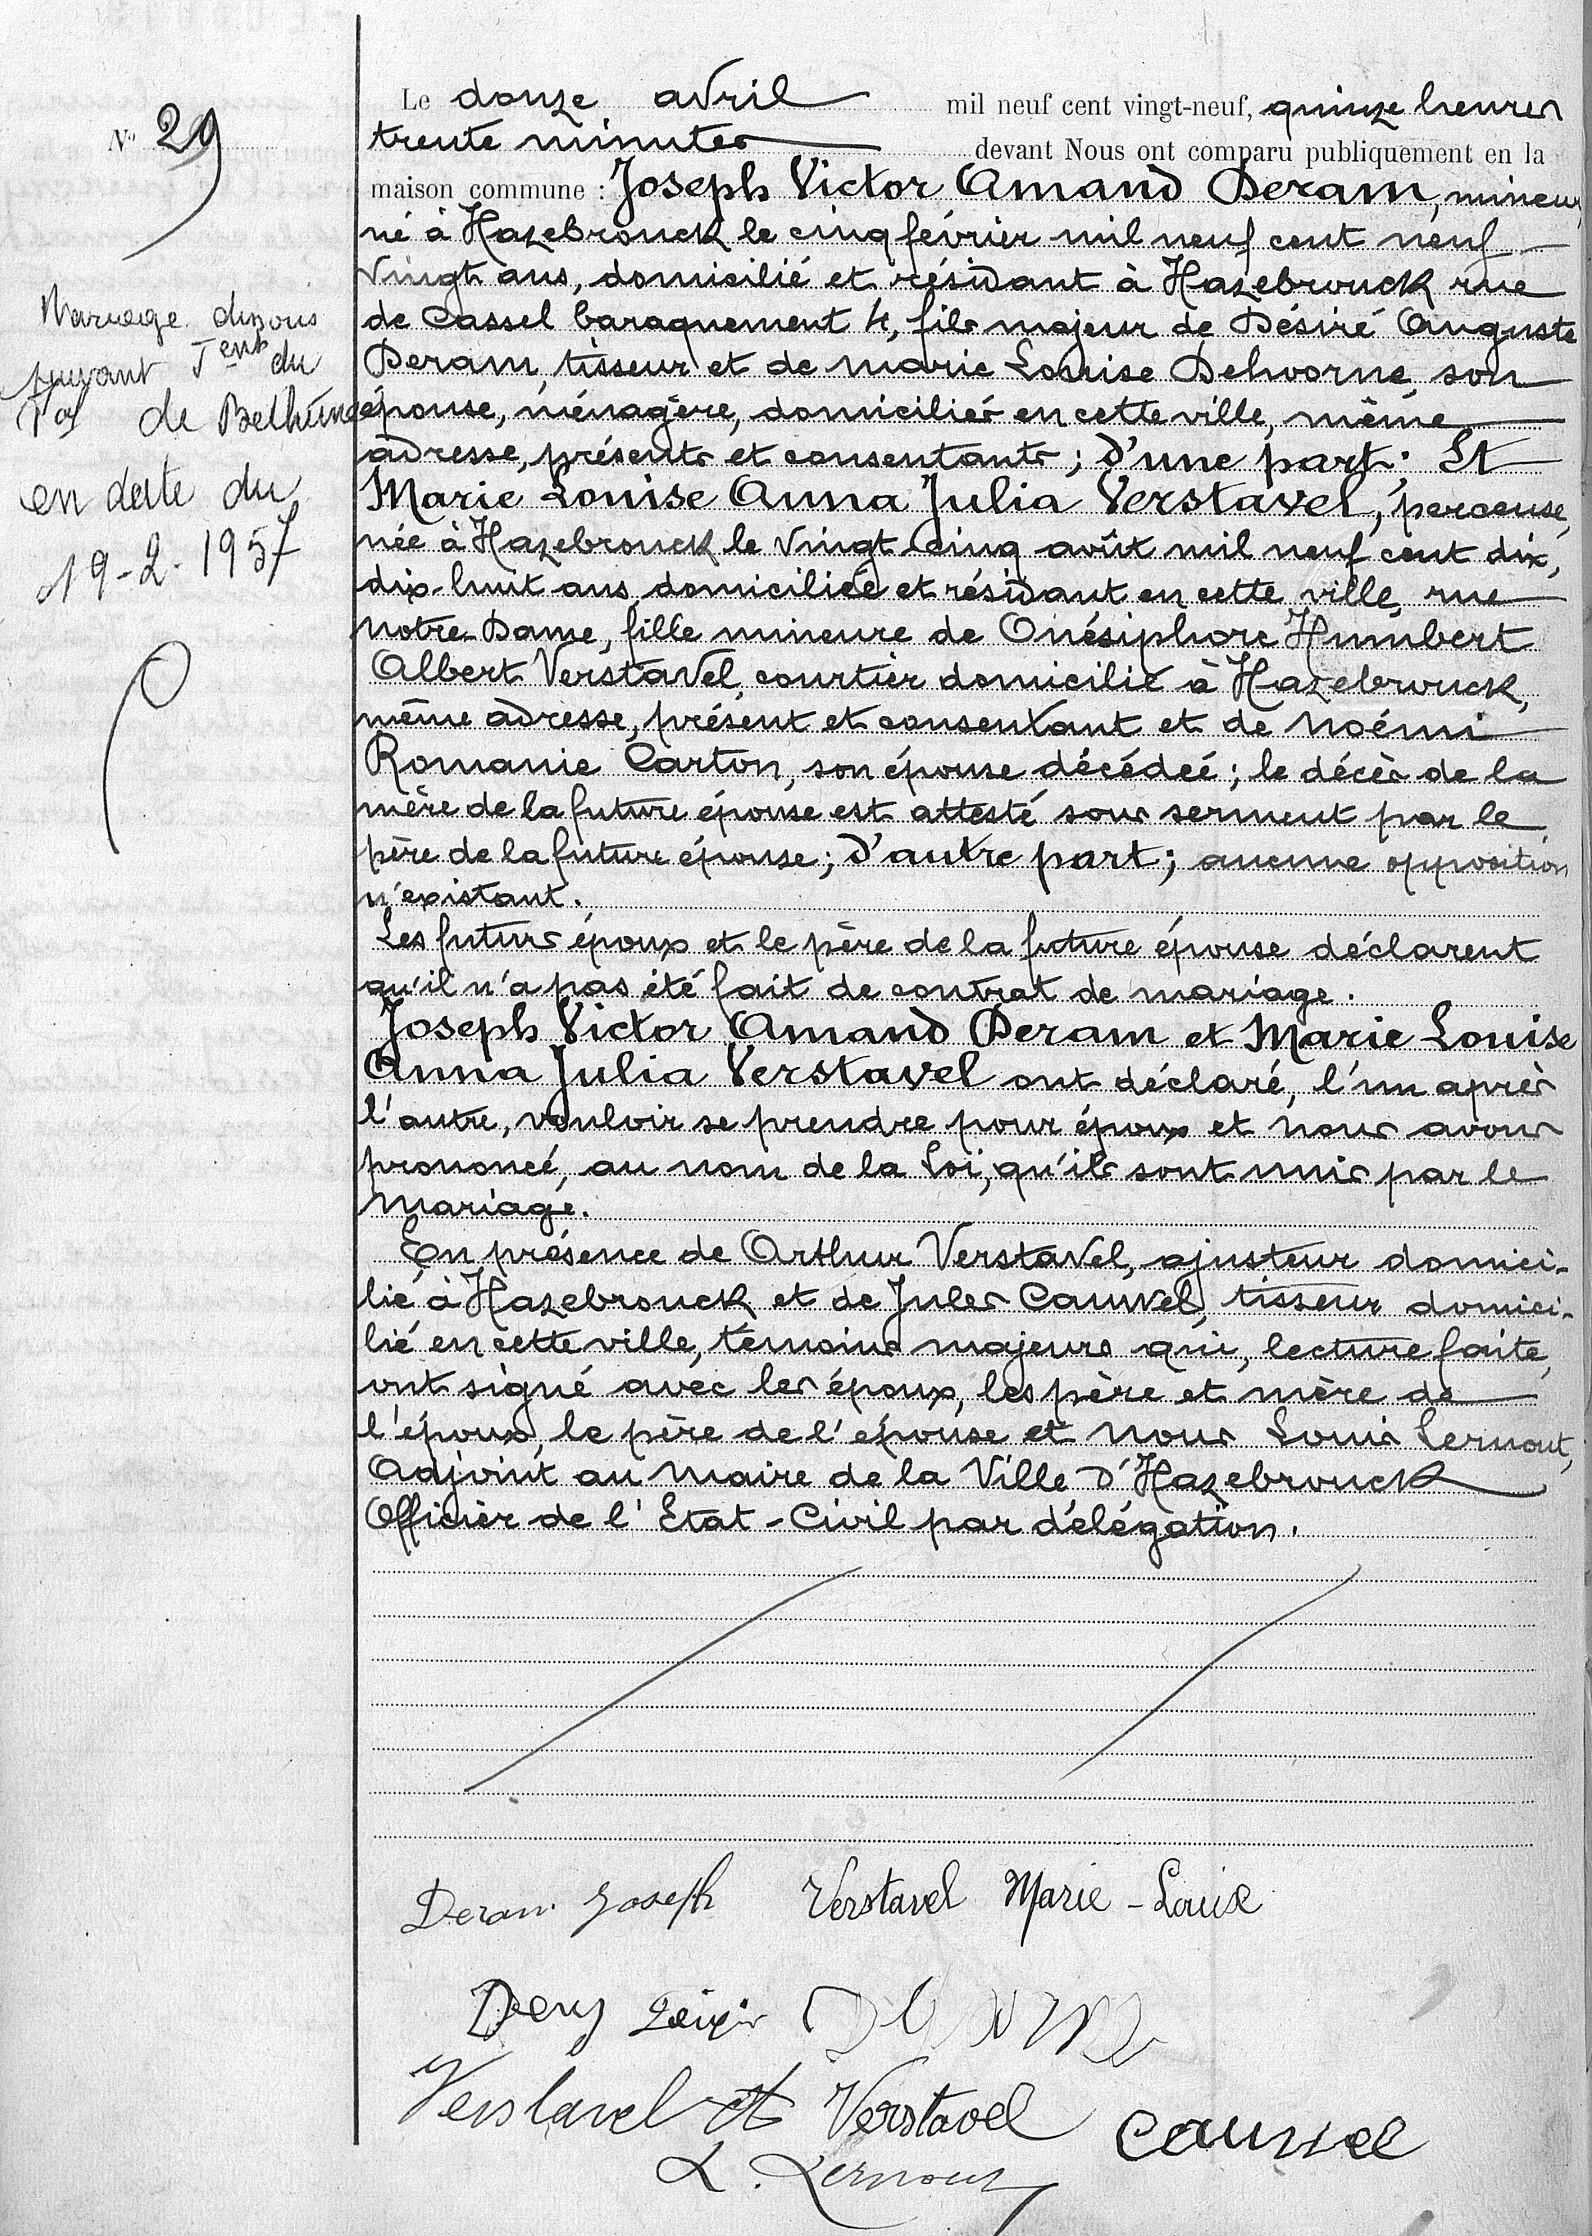 N° 29
Mariage dissous
suivant Jent du
Tal de Bethune
en date du
19-2-1957
Le douze avril mil neuf cent vingt-neuf, quinze heures
trente minutes devant Nous ont comparu publiquement en la
maison commune : Joseph Victor Amand Deram, mineur,
né à Hazebrouck le cinq février mil neuf cent neuf
vingt ans, domicilié et résidant à Hazebrouck rue
de Cassel baraquement 4, fils majeur de Désiré Auguste
Deram, tisseur et de Marie Louise Delvorne son
épouse, ménagère, domiciliés en cette ville, même
adresse, présents et consentants ; d'une part ; Et
Marie Louise Anna Julia Verstavel, perceuse,
née à Hazebrouck le vingt cinq août mil neuf cent dix,
dix-huit ans, domiciliée et résidant en cette ville, rue
Notre-Dame, fille mineure de Onésiphore Humbert
Albert Verstavel, courtier domicilié à Hazebrouck,
même adresse, présent et consentant et de Noémi
Romanie Carton, son épouse décédée ; le décès de la
mère de la future épouse est attesté sous serment par le
père de la future épouse ; d'autre part ; aucune opposition
n'existant.
Les futurs époux et le père de la future épouse déclarent
qu'il n'a pas été fait de contrat de mariage.
Joseph Victor Amand Deram et Marie Louise
Anna Julia Verstavel ont déclaré, l'un après
l'autre, vouloir se prendre pour époux et nous avons
prononcé, au nom de la Loi, qu'ils sont unis par le
mariage.
En présence de Arthur Verstavel, ajusteur domici-
lié à Hazebrouck et de Jules Cauwel, tisseur domici-
lié en cette ville, témoins majeurs qui, lecture faite,
ont signé avec les époux, les père et mère de
l'époux, le père de l'épouse et Nous Louis Lernout,
Adjoint au Maire de la Ville d'Hazebrouck
Officier de l'Etat-Civil par délégation.
Deram Joseph Verstavel Marie-Louise
Verstavel Verstavel Cauwel
L. Lernout